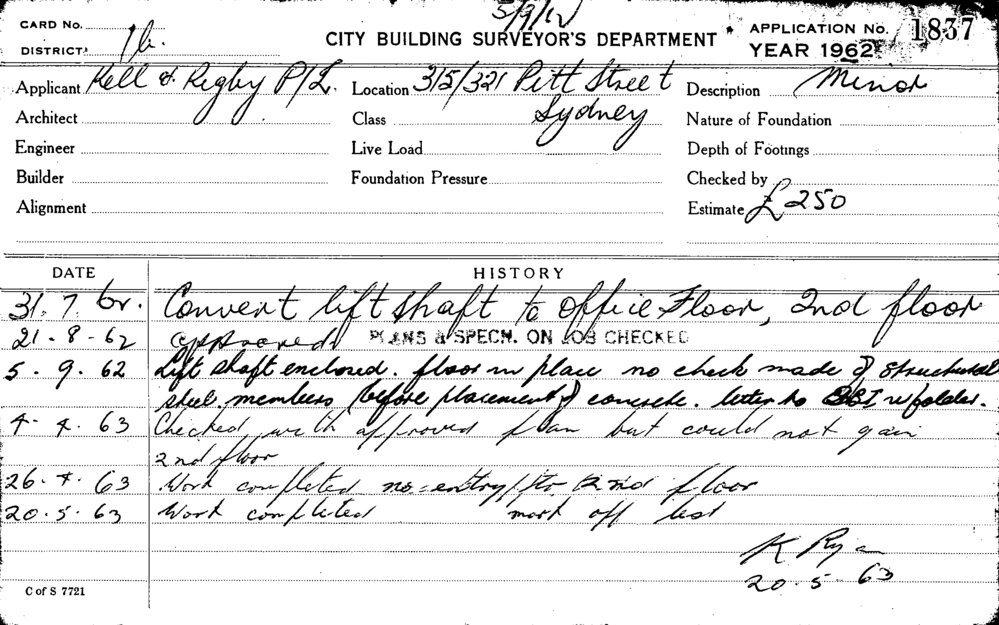 5/9/62
CARD No.
CITY BUILDING SURVEYOR'S DEPARTMENT
APPLICATION No. 1837
DISTRICT 1b.
YEAR 1962
Applicant Kell & Rigby P/L. Location 315/321 Pitt Street Description Minor
Architect Class Sydney Nature of Foundation
Engineer Live Load Depth of Footings
Builder Foundation Pressure Checked by
Alignment Estimate £250
DATE HISTORY
31. 7. 62. Convert lift shaft to office Floor, 2nd floor
21 . 8 - 62 approved PLANS & SPECN. ON JOB CHECKED
5 . 9 . 62 Lift shaft enclosed. floor in place no check made of structural
steel members (before placement of concrete. letter to BBI re folder.
4 - 4 . 63 Checked with approved plan but could not gain
2nd floor
26 . 4 . 63 Work completed no entry to 2nd floor
20 . 5 . 63 Work completed mark off list
K Ryan
20 . 5 - 63
C of S 7721